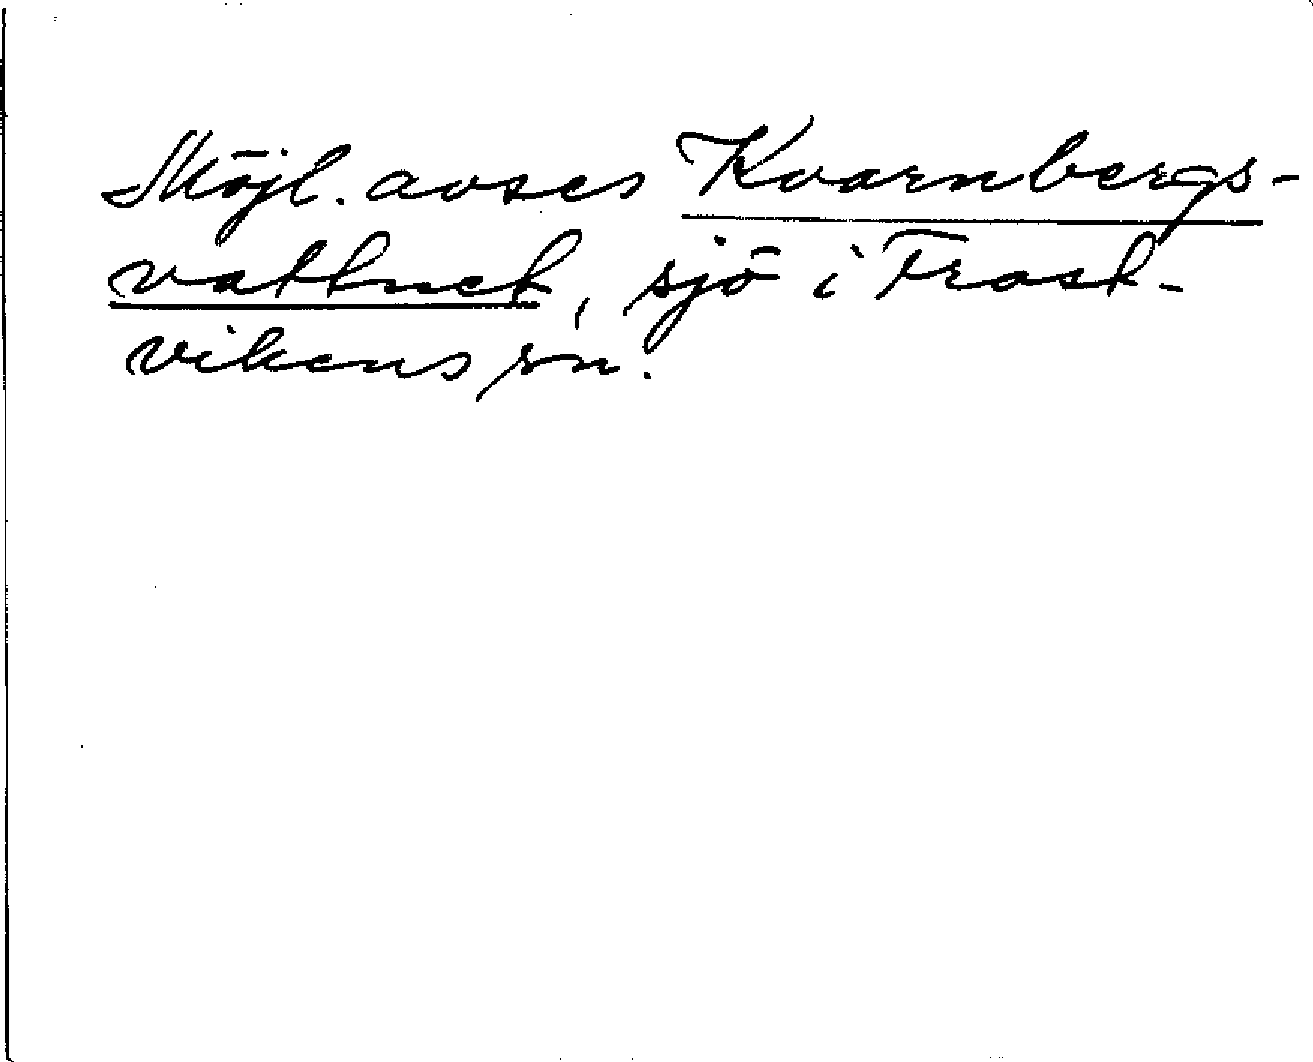 Möjl. avses Kvarnbergs-
vattnet, sjö i Frost-
vikens sn.